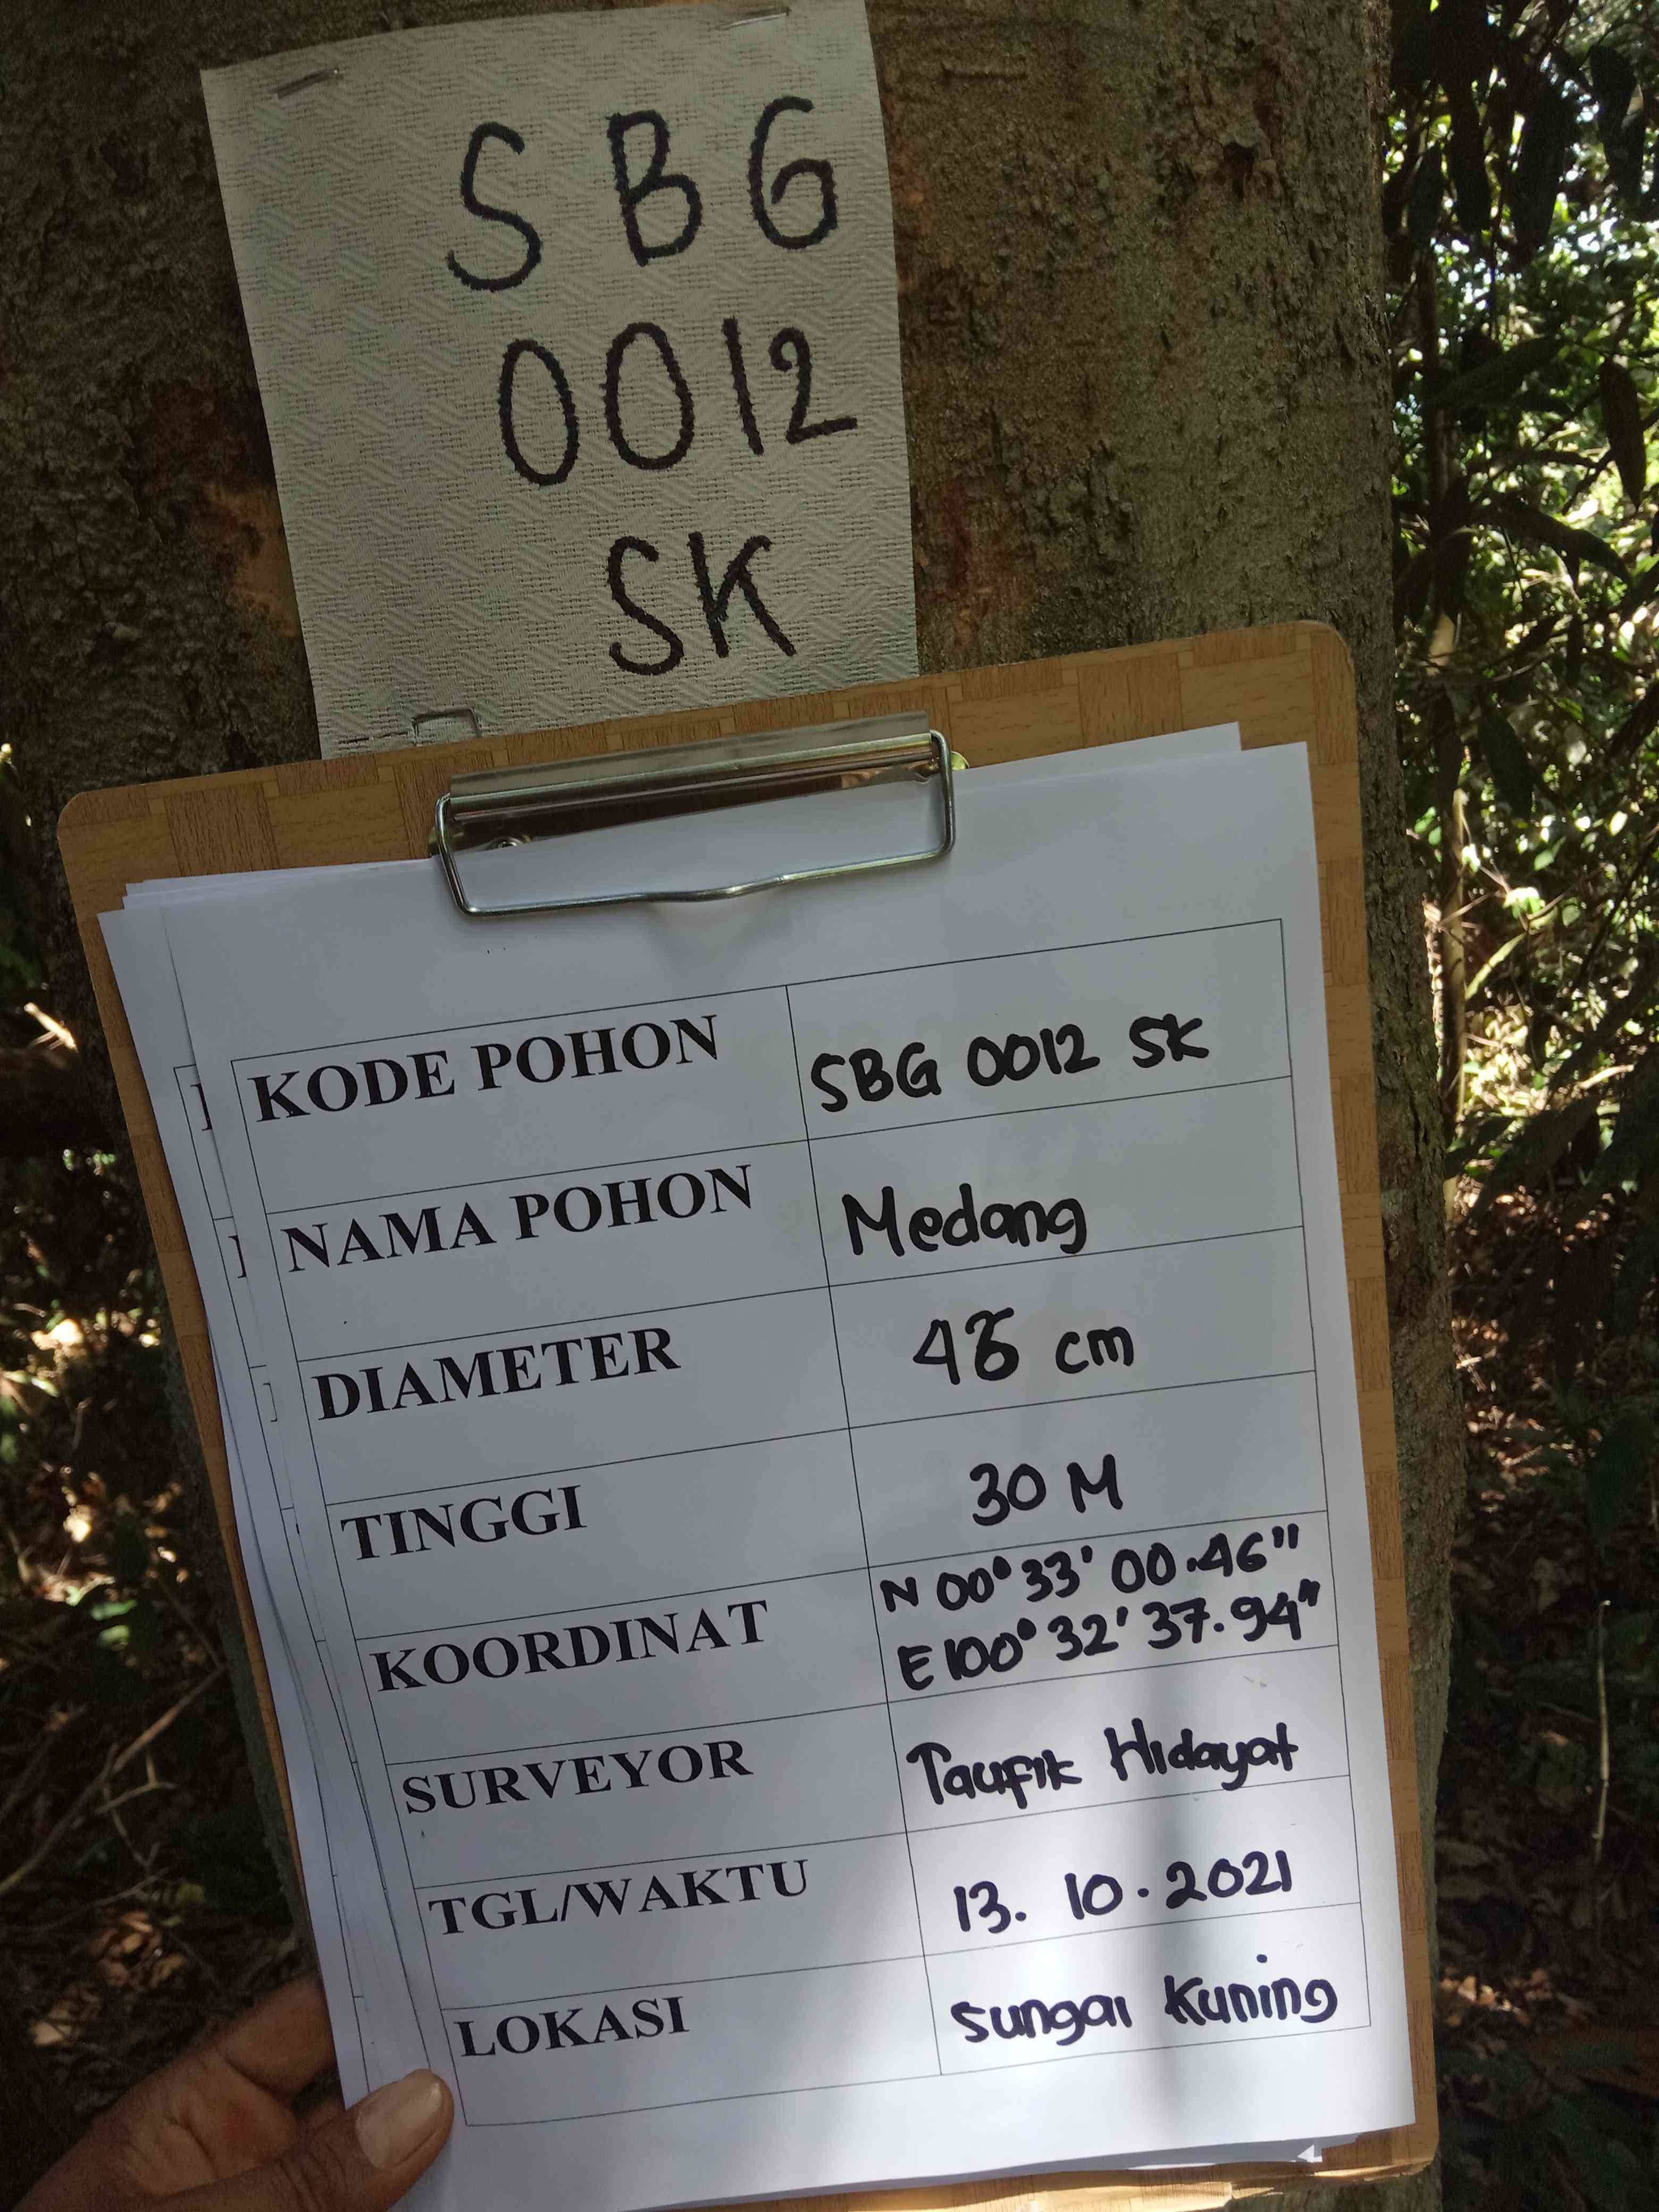 SBG
0012
SK
KODE POHON SBG 0012 SK
NAMA POHON Medang
DIAMETER 48 cm
TINGGI 30 M
KOORDINAT N 00° 33' 00.46"
E 100° 32' 37.94"
SURVEYOR Taufik Hidayat
TGL/WAKTU 13. 10. 2021
LOKASI Sungai Kuning